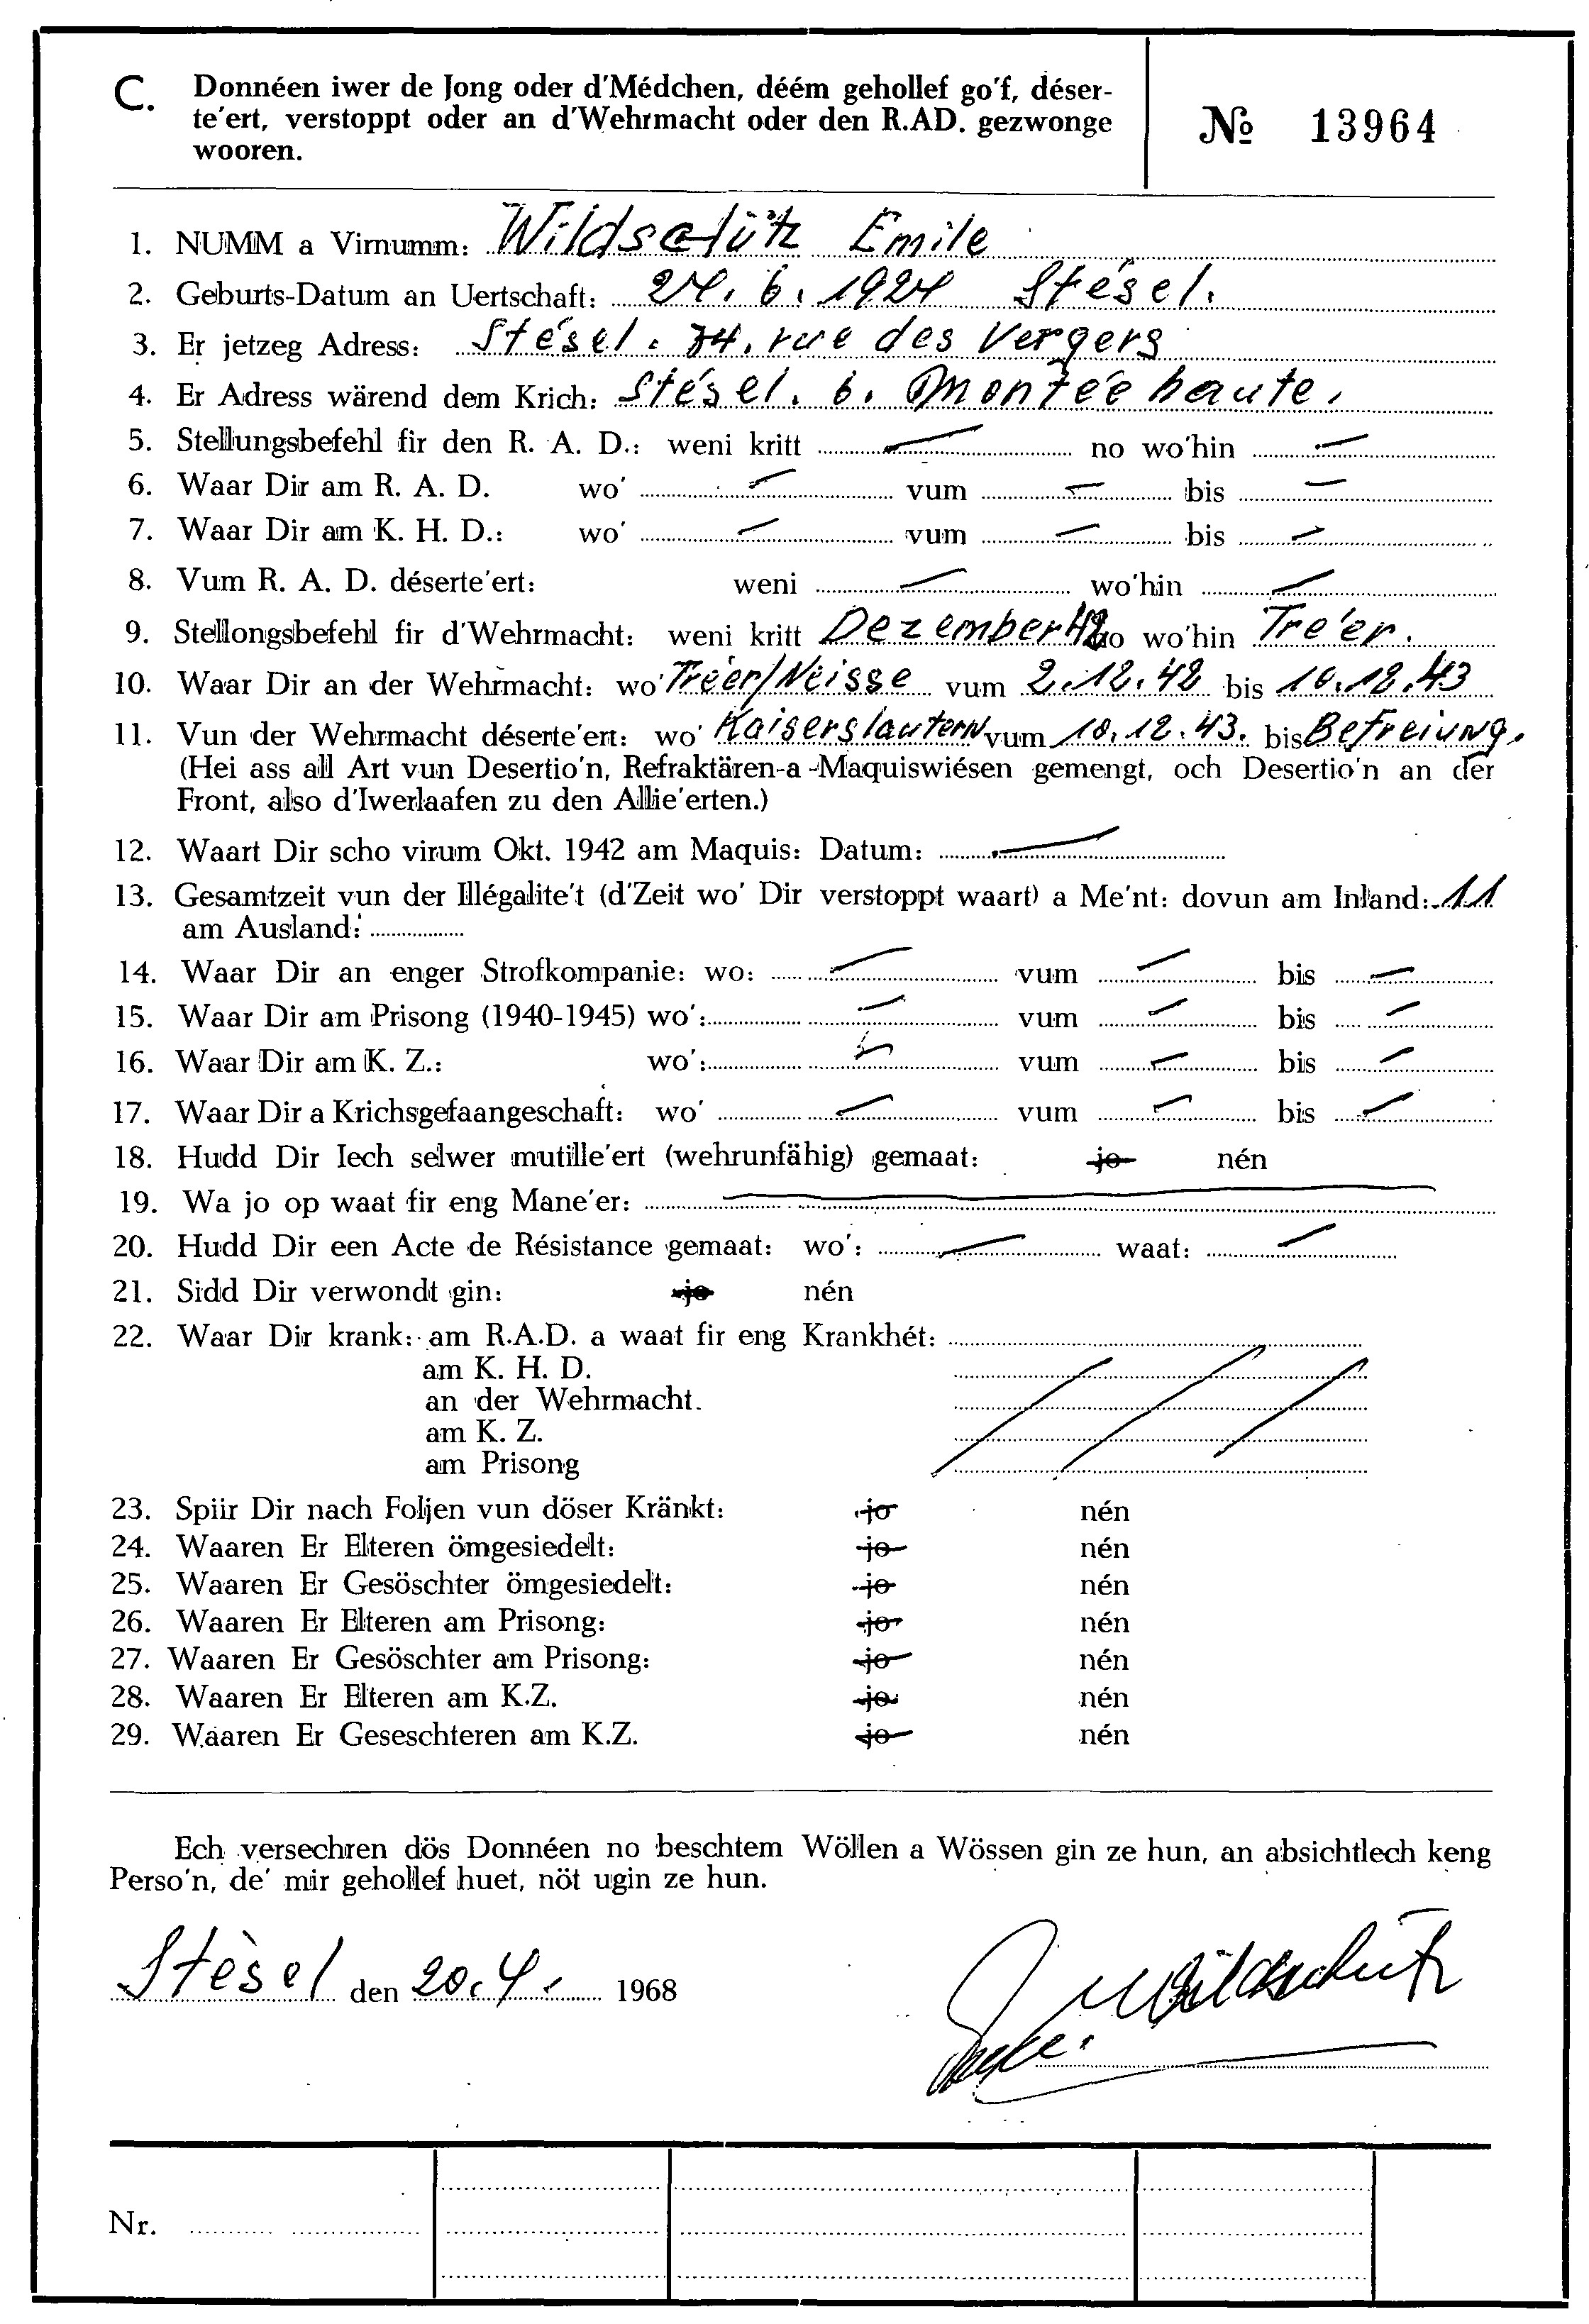 C. Donnéen iwer de Jong oder d'Médchen, déém gehollef go'f, déser-
te'ert, verstoppt oder an d'Wehrmacht oder den R.AD. gezwonge
wooren.
№ 13964
1. NUMM a Virnumm: Wildschütz Emile
2. Geburts-Datum an Uertschaft: 24. 6. 1924 Stésel.
3. Er jetzeg Adress: Stésel. 74, rue des Vergers
4. Er Adress wärend dem Krich: Stésel. 6. Montée haute.
5. Stellungsbefehl fir den R. A. D.: weni kritt — no wo'hin —
6. Waar Dir am R. A. D. wo' — vum — bis —
7. Waar Dir am K. H. D.: wo' — vum — bis —
8. Vum R. A. D. déserte'ert: weni — wo'hin —
9. Stellongsbefehl fir d'Wehrmacht: weni kritt Dezember 42 no wo'hin Tre'er.
10. Waar Dir an der Wehrmacht: wo' Tréer/Neisse vum 2.12.42 bis 10.12.43
11. Vun der Wehrmacht déserte'ert: wo' Kaiserslautern vum 10.12.43. bis Befreiung.
(Hei ass all Art vun Desertio'n, Refraktären-a-Maquiswiésen gemengt, och Desertio'n an der
Front, also d'Iwerlaafen zu den Allie'erten.)
12. Waart Dir scho virum Okt. 1942 am Maquis: Datum: —
13. Gesamtzeit vun der Illégalite't (d'Zeit wo' Dir verstoppt waart) a Me'nt: dovun am Inland: 11
am Ausland:
14. Waar Dir an enger Strofkompanie: wo: — vum — bis —
15. Waar Dir am Prisong (1940-1945) wo': — vum — bis —
16. Waar Dir am K. Z.: wo': — vum — bis —
17. Waar Dir a Krichsgefaangeschaft: wo' — vum — bis —
18. Hudd Dir Iech selwer mutille'ert (wehrunfähig) gemaat: jo nén
19. Wa jo op waat fir eng Mane'er: —
20. Hudd Dir een Acte de Résistance gemaat: wo': — waat: —
21. Sidd Dir verwondt gin: jo nén
22. Waar Dir krank: am R.A.D. a waat fir eng Krankhét:
am K. H. D.
an der Wehrmacht.
am K. Z.
am Prisong
23. Spiir Dir nach Foljen vun döser Kränkt: jo nén
24. Waaren Er Elteren ömgesiedelt: jo nén
25. Waaren Er Gesöschter ömgesiedelt: jo nén
26. Waaren Er Elteren am Prisong: jo nén
27. Waaren Er Gesöschter am Prisong: jo nén
28. Waaren Er Elteren am K.Z. jo nén
29. Waaren Er Geseschteren am K.Z. jo nén
Ech versechren dös Donnéen no beschtem Wöllen a Wössen gin ze hun, an absichtlech keng
Perso'n, de' mir gehollef huet, nöt ugin ze hun.
Stèsel den 20.4. 1968
Wildschütz
Nr.